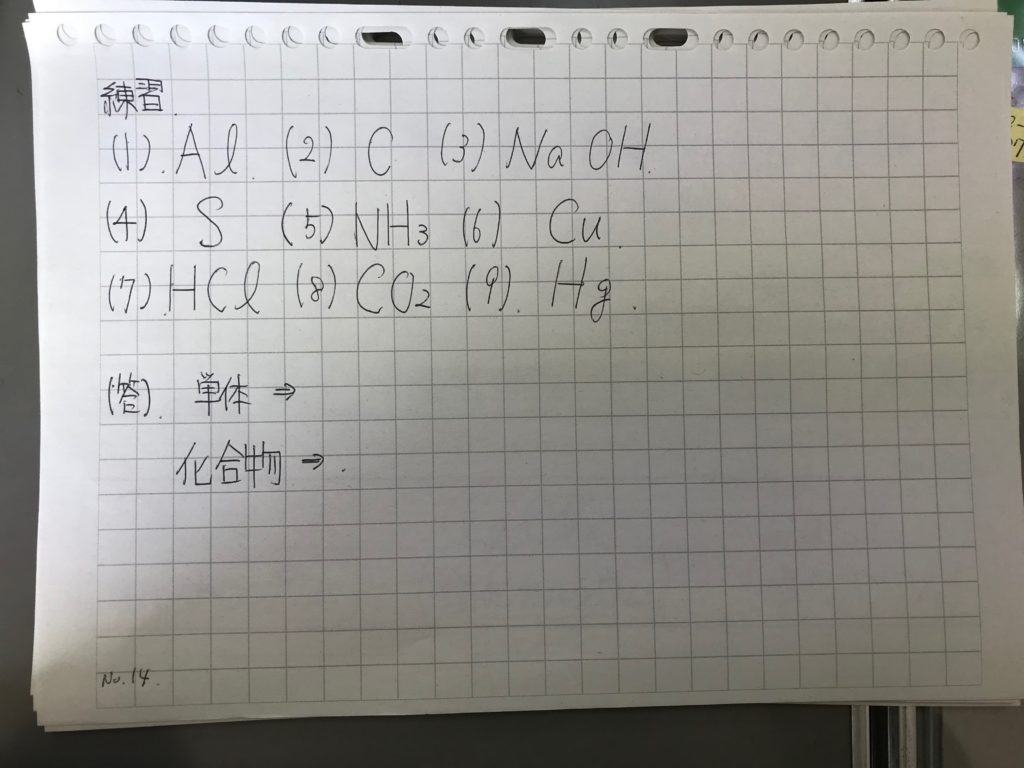 練習
(1). Al. (2) C (3) NaOH.
(4) S (5) NH3 (6) Cu.
(7). HCl (8) CO2 (9). Hg.
(答). 単体 ⇒
化合物 ⇒.
No.14.